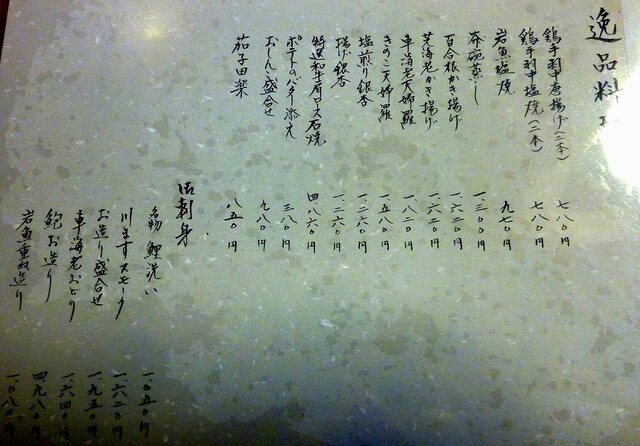 逸品料
鶏手羽中唐揚げ(二本) 七八〇円
鶏手羽中塩焼(二本) 七八〇円
岩魚塩焼 九七〇円
茶碗蒸し 一、三〇〇円
百合根かき揚げ 一、六二〇円
芝海老かき揚げ 一、六二〇円
車海老天婦羅 一、八二〇円
きのこ天婦羅 一、五八〇円
塩煎り銀杏 一、二六〇円
揚げ銀杏 一、二六〇円
特選和牛肩ロース石焼 四、八六〇円
ポテトのバター添え 三八〇円
おしんこ盛合せ 九八〇円
茄子田楽 八五〇円
御刺身
名物 鯉洗い 一、〇五〇円
川ますスモーク 一、六二〇円
お造り盛合せ 一、九五〇円
車海老おどり 一、六四〇円
鮑お造り 四、九八〇円
岩魚一重ね造り 一、〇八〇円